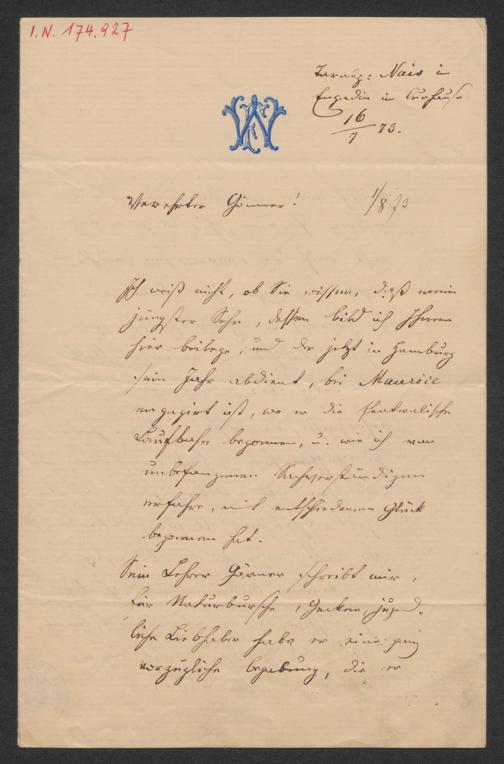 I.N. 174.927
Tarasp: Nairs im
Engadin im Curhause
16/7 73.
Verehrter Gönner! 1/8 73
Ich weiß nicht, ob Sie wissen, daß mein
jüngster Sohn, dessen bild ich Ihnen
hier beilege, und der jetzt in Hamburg
sein Jahr abdient, bei Maurice
engagirt ist, wo er die theatralische
Laufbahn begonnen, u. wie ich von
unbefangenen Sachverständigen
erfahre, mit entschiedenem Glück
begonnen hat.
Sein Lehrer Görner schreibt mir,
für Naturbursche, Gecken, jugend-
liche Liebhaber habe er eine ganz
vorzügliche begabung, die er